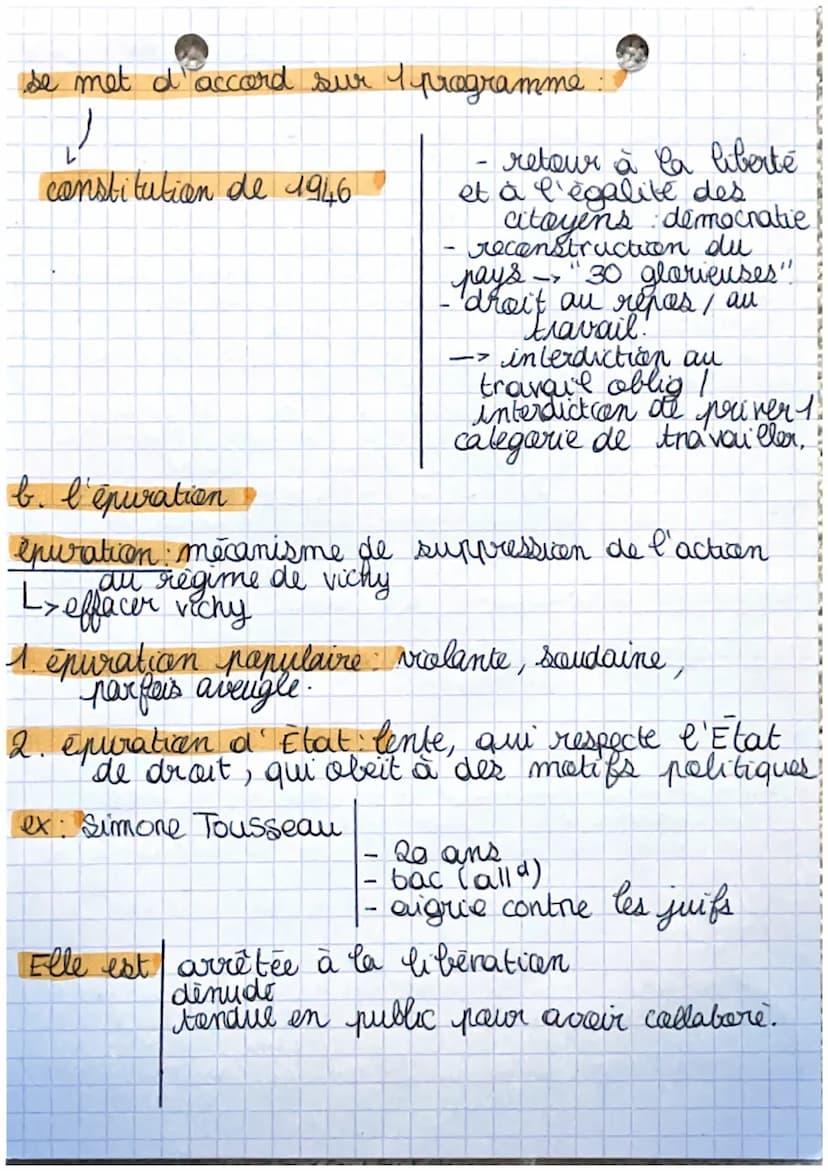 se met d'accord sur 1 programme :
constitution de 1946
- retour à la liberté
et à l'égalité des
citoyens : démocratie
- reconstruction du
pays -> "30 glorieuses"
- droit au repos / au
travail.
-> interdiction au
travail oblig /
interdiction de priver 1
catégorie de travailler.
b. l'épuration
épuration : mécanisme de suppression de l'action
du régime de vichy
↳ effacer vichy
1. épuration populaire : violante, soudaine,
parfois aveugle.
2. épuration d'État : lente, qui respecte l'État
de droit, qui obeit à des motifs politiques
ex : Simone Tousseau
- 20 ans
- bac (all d)
- aigrie contre les juifs
Elle est arrêtée à la libération
dénudé
tondue en public pour avoir collaboré.